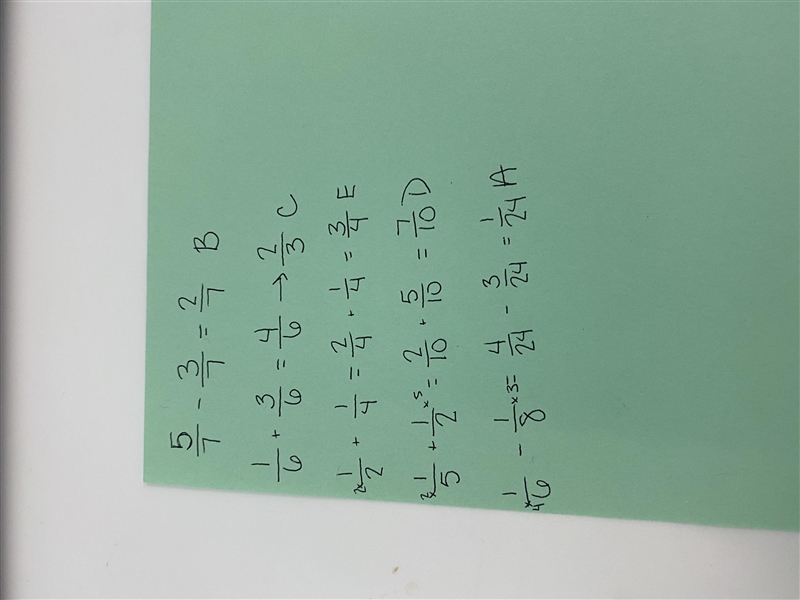 5/7 - 3/7 = 2/7 B
1/6 + 3/6 = 4/6 → 2/3 C
2x 1/2 + 1/4 = 2/4 + 1/4 = 3/4 E
2x 1/5 + 1/2 x5 = 2/10 + 5/10 = 7/10 D
4x 1/6 - 1/8 x3 = 4/24 - 3/24 = 1/24 A